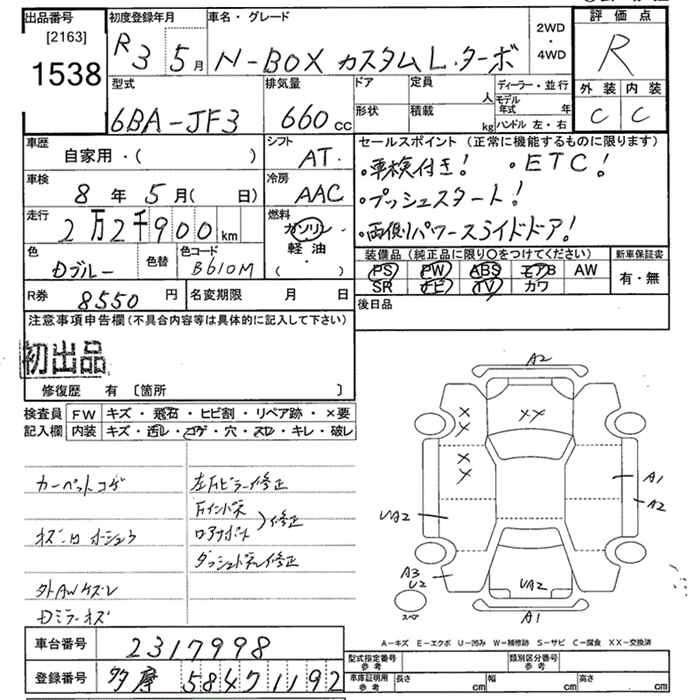 出品番号
[2163]
1538
初度登録年月
R3 5月
車名・グレード
N-BOX カスタムL・ターボ
2WD
・
4WD
評価点
R
外装 内装
C C
型式
6BA-JF3
排気量
660cc
ドア
形状
定員
人
積載
kg
ディーラー・並行
モデル年式 年
ハンドル 左・右
車歴
自家用・( )
シフト
AT
車検
8年 5月( 日)
冷房
AAC
走行
2万2千900km
燃料
ガソリン
軽油
( )
色
Dブルー
色替
色コード
B610M
R券
8550円
名変期限 月 日
セールスポイント (正常に機能するものに限ります)
・車検付き! ・ETC!
・プッシュスタート!
・両側パワースライドドア!
装備品 (純正品に限り○をつけてください)
新車保証書
PS PW ABS エアB AW
有・無
SR ナビ TV カワ
後日品
注意事項申告欄(不具合内容等は具体的に記入して下さい)
初出品
修復歴 有 [箇所 ]
検査員
記入欄
FW キズ・飛石・ヒビ割・リペア跡・×要
内装 キズ・汚レ・コゲ・穴・スレ・キレ・破レ
カーペットコゲ
外AWキズレ
Dミラーキズ
左Aピラー修正
ダッシュパネル修正
修正
A2
XX
X
X
X
X
A1
A2
UA2
A3
U2
UA2
A1
スペア
A-キズ E-エクボ U-凹み W-補修跡 S-サビ C-腐食 XX-交換済
車台番号
2317998
登録番号
多摩 584 71192
型式指定番号
参考
類別区分番号
参考
車庫証明用
参考
長さ cm
幅 cm
高さ cm